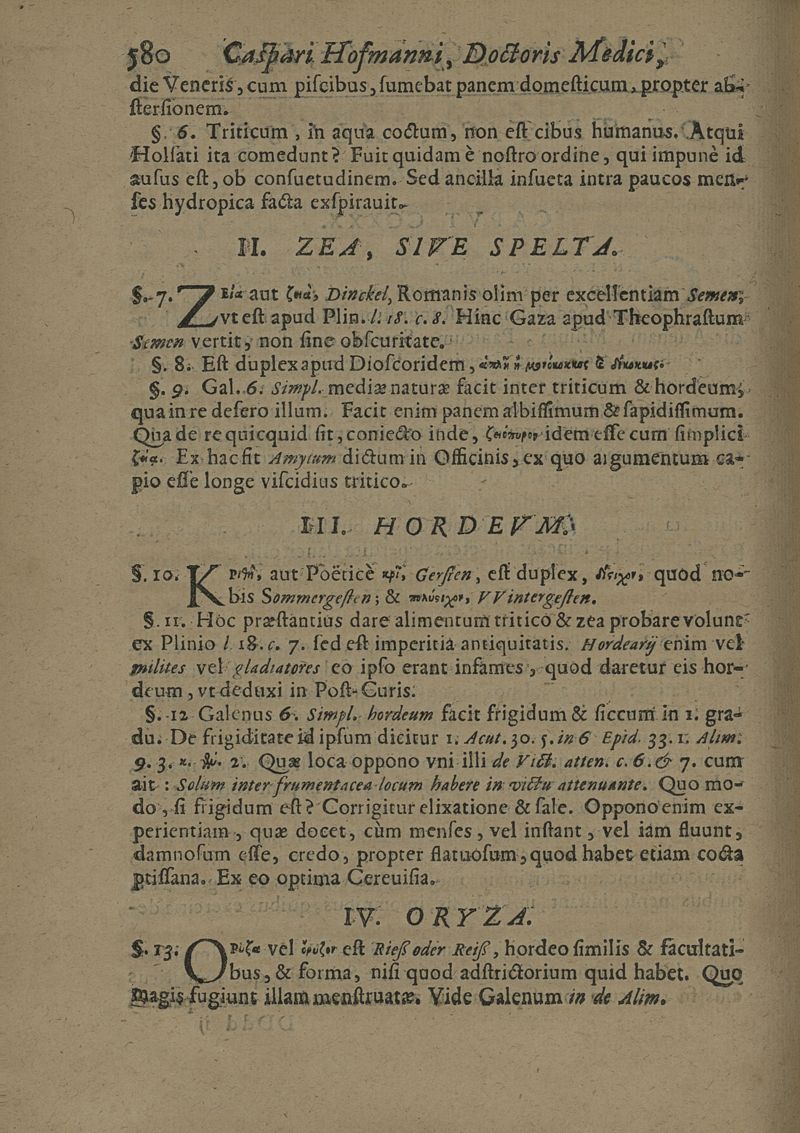 580 Caſpari Hofmanni, Doctoris Medici,
die Veneris, cum piſcibus, ſumebat panem domeſticum, propter ab-
ſterſionem.
§. 6. Triticum, in aqua coctum, non eſt cibus humanus. Atqui
Holſati ita comedunt? Fuit quidam è noſtro ordine, qui impunè id
auſus eſt, ob conſuetudinem. Sed ancilla inſueta intra paucos men-
ſes hydropica facta exſpirauit.
II. ZEA, SIVE SPELTA.
§. 7. ZEία aut ζειὰ, Dinckel, Romanis olim per excellentiam Semen;
vt eſt apud Plin. l. 18. c. 8. Hinc Gaza apud Theophraſtum
Semen vertit, non ſine obſcuritate.
§. 8. Eſt duplex apud Dioſcoridem, ἁπλῆ ἢ μονόκοκκος & δίκοκκος.
§. 9. Gal. 6. Simpl. mediæ naturæ facit inter triticum & hordeum;
qua in re deſero illum. Facit enim panem albiſſimum & ſapidiſſimum.
Qua de re quicquid ſit, coniecto inde, ζειόπυρον idem eſſe cum ſimplici
ζειᾷ. Ex hac fit Amylum dictum in Officinis, ex quo argumentum ca-
pio eſſe longe viſcidius tritico.
III. HORDEVM.
§. 10. KΡιθὴ, aut Poëticè κρῖ, Gerſten, eſt duplex, δίςιχον, quod no-
bis Sommergeſten; & πολύςιχον, VVintergeſten.
§. 11. Hoc præſtantius dare alimentum tritico & zea probare volunt
ex Plinio l 18. c. 7. ſed eſt imperitia antiquitatis. Hordearij enim vel
milites vel gladiatores eo ipſo erant infames, quod daretur eis hor-
deum, vt deduxi in Poſt-Curis.
§. 12 Galenus 6. Simpl. hordeum facit frigidum & ſiccum in 1. gra-
du. De frigiditate id ipſum dicitur 1. Acut. 30. 5. in 6 Epid. 33. 1. Alim.
9. 3. 2. Quæ loca oppono vni illi de Vict. atten. c. 6. & 7. cum
ait: Solum inter frumentacea locum habere in victu attenuante. Quo mo-
do, ſi frigidum eſt? Corrigitur elixatione & ſale. Oppono enim ex-
perientiam, quæ docet, cùm menſes, vel inſtant, vel iam fluunt,
damnoſum eſſe, credo, propter flatuoſum, quod habet etiam cocta
ptiſſana. Ex eo optima Cereuiſia.
IV. ORYZA.
§. 13. OΡυζα vel ὄρυζον eſt Rieß oder Reiß, hordeo ſimilis & facultati-
bus, & forma, niſi quod adſtrictorium quid habet. Quo
magis fugiunt illam menſtruatæ. Vide Galenum in de Alim.